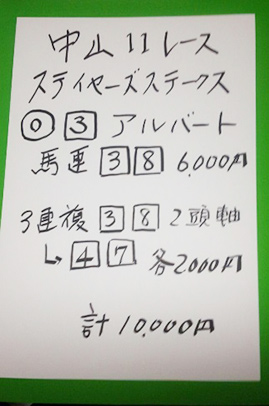 中山11レース
ステイヤーズステークス
◎ 3 アルバート
馬連 3 8 6,000円
3連複 3 8 2頭軸
↳ 4 7 各2000円
計10,000円